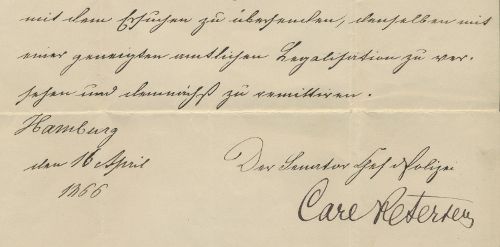 mit dem Ersuchen zu übersenden, denselben mit
einer geneigten amtlichen Legalisation zu ver-
sehen und demnächst zu remittiren.
Hamburg
den 16 April
1866
Der Senator Chef d Polizei
Carl Petersen